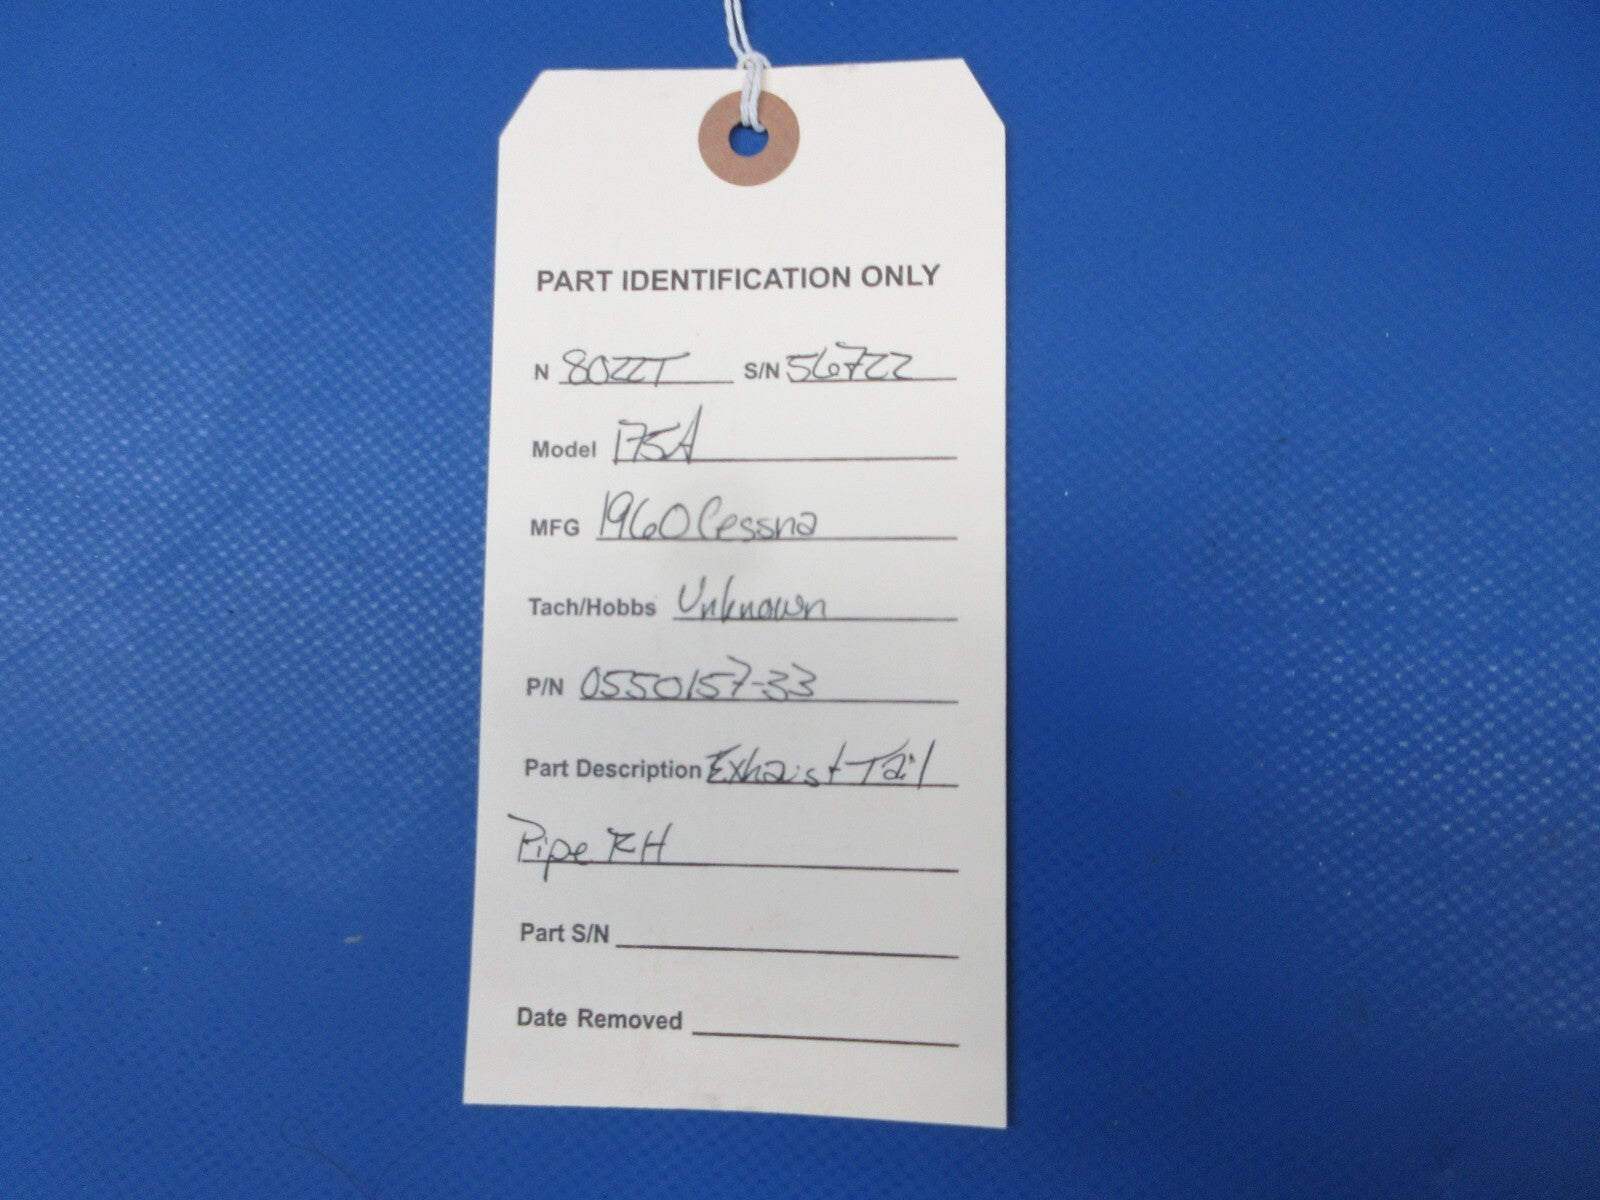 PART IDENTIFICATION ONLY
N 8022T S/N 56722
Model 175A
MFG 1960 Cessna
Tach/Hobbs Unknown
P/N 0550157-33
Part Description Exhaust Tail
Pipe RH
Part S/N
Date Removed